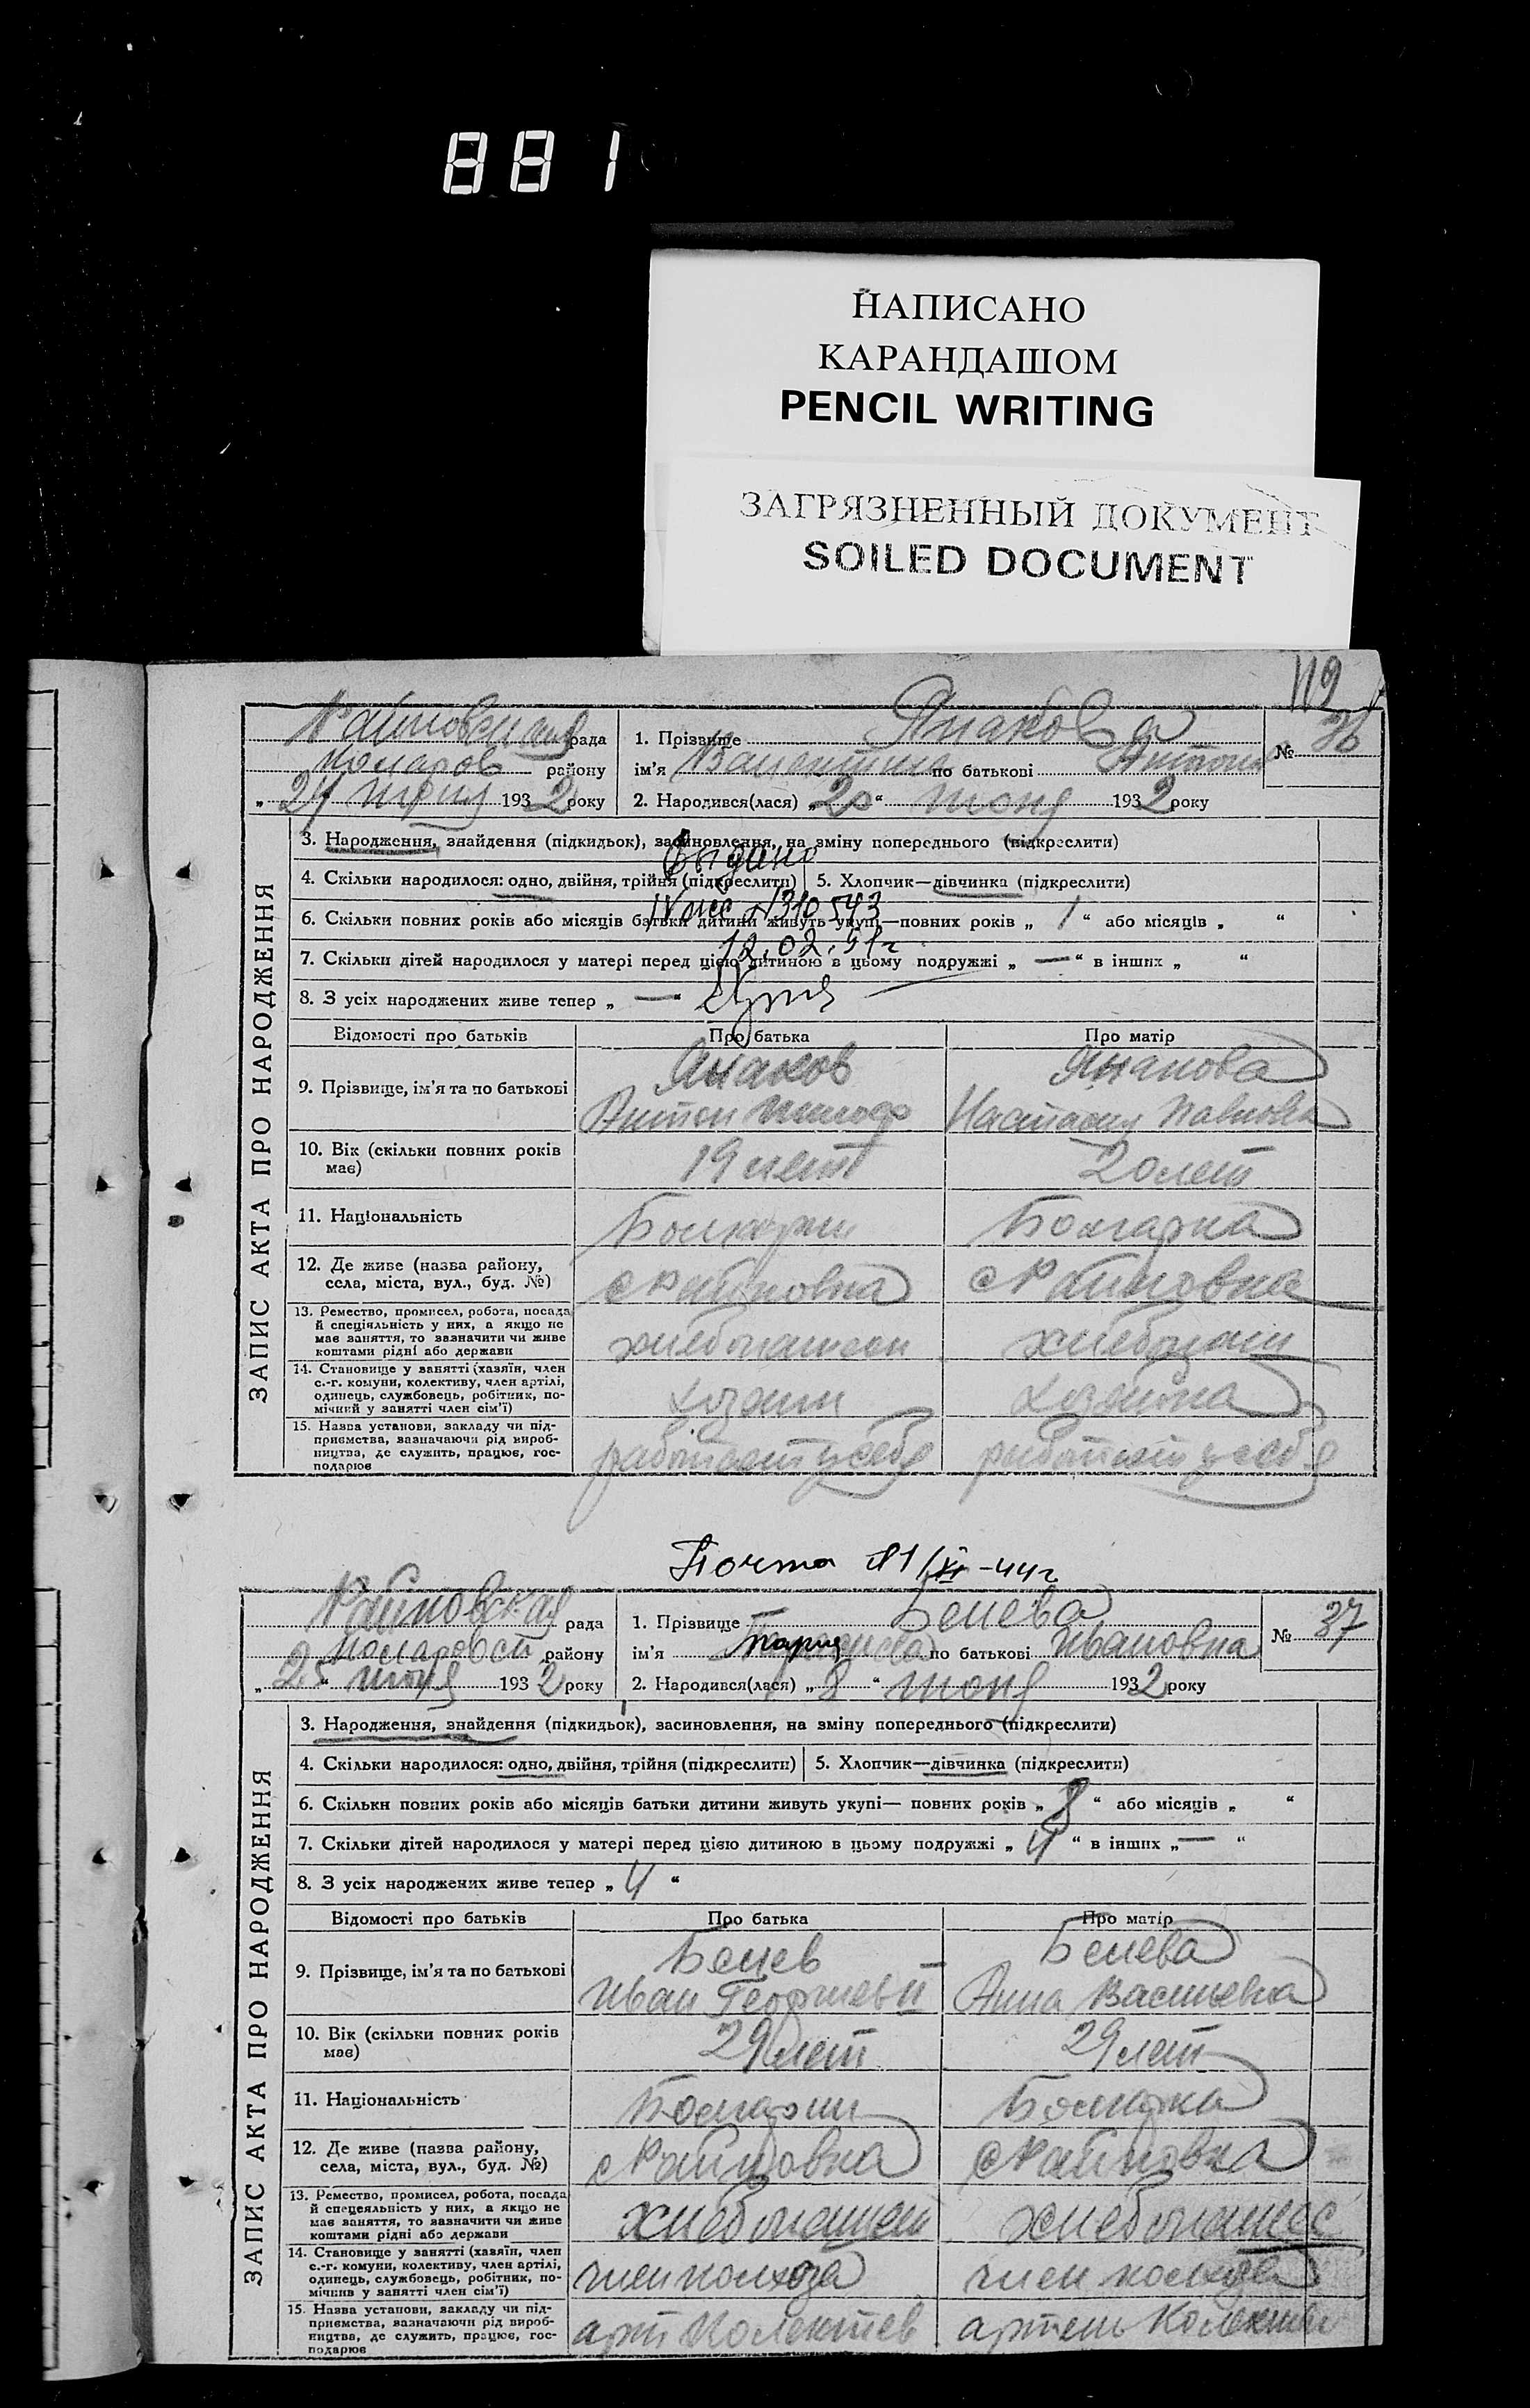 881
НАПИСАНО
КАРАНДАШОМ
PENCIL WRITING
ЗАГРЯЗНЕННЫЙ ДОКУМЕНТ
SOILED DOCUMENT
119
ЗАПИС АКТА ПРО НАРОДЖЕННЯ
рада
району
„24" июня 1932 року
1. Прізвище Янакова
ім'я Валентина по батькові Антон
№ 36
2. Народився(лася) „20" июня 1932 року
3. Народження, знайдення (підкидьок), засиновлення, на зміну попереднього (підкреслити)
Выдано
4. Скільки народилося: одно, двійня, трійня (підкреслити) 5. Хлопчик—дівчинка (підкреслити)
№310543
6. Скільки повних років або місяців батьки дитини живуть укупі—повних років „1" або місяців „ "
12.02.51г
7. Скільки дітей народилося у матері перед цією дитиною в цьому подружжі „—" в інших „ "
8. З усіх народжених живе тепер „—
Відомості про батьків Про батька Про матір
9. Прізвище, ім'я та по батькові
Янаков
Антон
Янакова
Настасия Павловна
10. Вік (скільки повних років має)
19 лет
20 лет
11. Національність
Болгарин
Болгарка
12. Де живе (назва району, села, міста, вул., буд. №)
с Райновка
с Райновка
13. Ремество, промисел, робота, посада й спеціяльність у них, а якщо не має заняття, то зазначити чи живе коштами рідні або держави
хлебопашец
14. Становище у занятті (хазяїн, член с.-г. комуни, колективу, член артілі, одинець, службовець, робітник, помічний у занятті член сім'ї)
хозяин
хозяйка
15. Назва установи, закладу чи підприємства, зазначаючи рід виробництва, де служить, працює, господарює
работает у себя
работает у себя
Почта 11/XI-44г
ЗАПИС АКТА ПРО НАРОДЖЕННЯ
Райновская рада
району
„25" июня 1932 року
1. Прізвище Бенева
ім'я Мария по батькові Ивановна
№ 37
2. Народився(лася) „8" июня 1932 року
3. Народження, знайдення (підкидьок), засиновлення, на зміну попереднього (підкреслити)
4. Скільки народилося: одно, двійня, трійня (підкреслити) 5. Хлопчик—дівчинка (підкреслити)
6. Скільки повних років або місяців батьки дитини живуть укупі— повних років „8" або місяців „ "
7. Скільки дітей народилося у матері перед цією дитиною в цьому подружжі „4" в інших „—"
8. З усіх народжених живе тепер „4"
Відомості про батьків Про батька Про матір
9. Прізвище, ім'я та по батькові
Бенев
Иван Георгиев
Бенева
Анна Васильевна
10. Вік (скільки повних років має)
29 лет
29 лет
11. Національність
Болгарин
Болгарка
12. Де живе (назва району, села, міста, вул., буд. №)
с Райновка
с Райновка
13. Ремество, промисел, робота, посада й спецеяльність у них, а якщо не має заняття, то зазначити чи живе коштами рідні або держави
хлебопашец
хлебопашес
14. Становище у занятті (хазяїн, член с.-г. комуни, колективу, член артілі, одинець, службовець, робітник, помічнив у занятті член сім'ї)
член колхоза
член колхоза
15. Назва установи, закладу чи підприємства, зазначаючи рід виробництва, де служить, працює, господарює
арт Колектев
артель Колектив